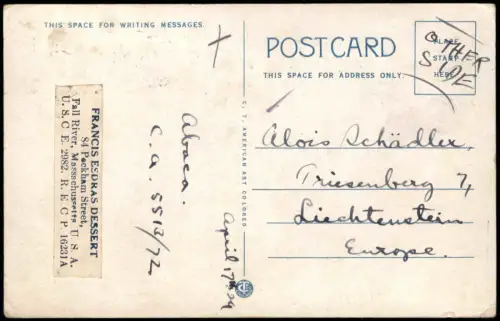 THIS SPACE FOR WRITING MESSAGES.
POSTCARD
THIS SPACE FOR ADDRESS ONLY.
PLACE
STAMP
HERE
OTHER
SIDE
FRANCIS ESDRAS DESSERT
84 Peckham Street,
Fall River, Massachusetts U. S. A.
U. S. C. E. 2982. R. E. C P. 16231A
Abaca.
C.A. 5513/72
April 17th 29
C. T. AMERICAN ART COLORED
Alois Schädler
Triesenberg 7,
Liechtenstein
Europe.